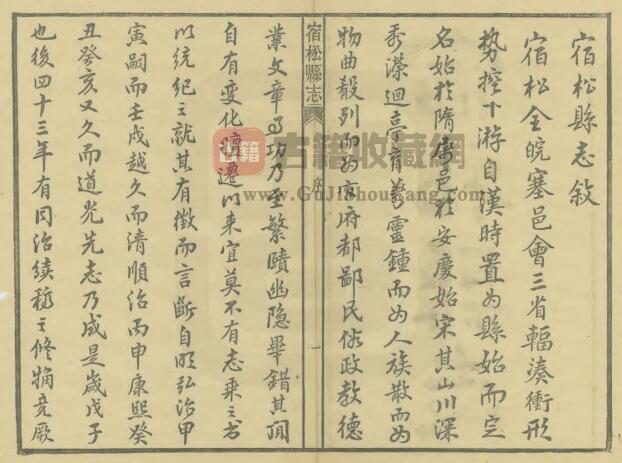 宿松縣志敘
宿松全皖塞邑會三省輻湊衝形
勢控下游自漢時置為縣始而定
名始於隋屬邑於安慶始宋其山川深
秀濚迴亭育萬靈鍾而為人族散而為
物曲殽列而為官府都鄙民俗政教德
宿松縣志
序
一
業文章事功乃至繁賾幽隱畢錯其間
自有變化嬗遷以來宜莫不有志乘之書
以統紀之就其有徵而言斷自明弘治甲
寅嗣而壬戌越久而清順治丙申康熙癸
丑癸亥又久而道光先志乃成是歲戊子
也後四十三年有同治續稿之修擱竟厥
古籍收藏網
www.GuJiShouCang.com
古籍